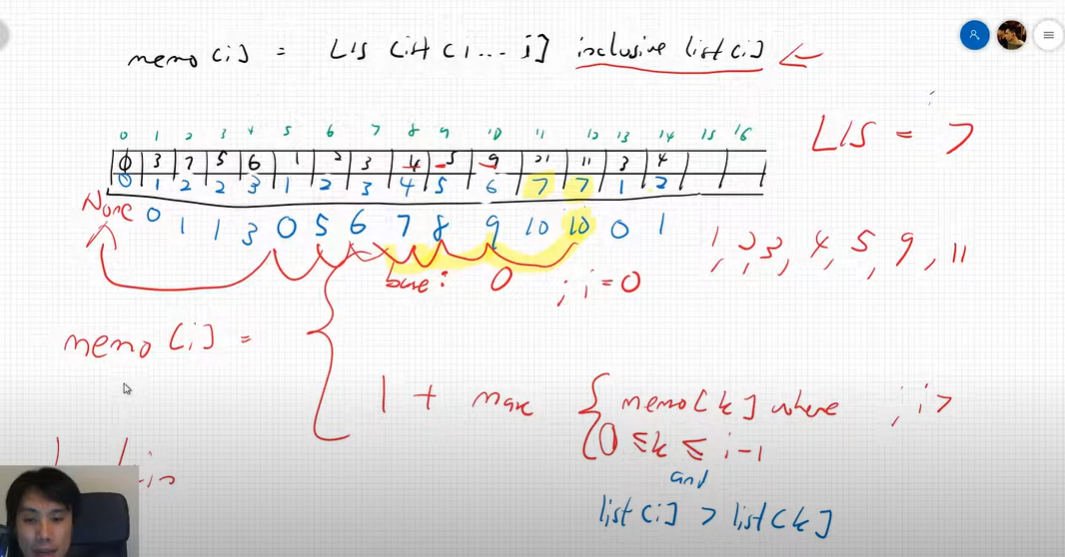 memo[i] = LIS list[1...i] inclusive list[i] ←
0 1 2 3 4 5 6 7 8 9 10 11 12 13 14 15 16
LIS = 7
φ 3 7 5 6 1 2 3 4 5 9 21 11 3 4
0 1 2 2 3 1 2 3 4 5 6 7 7 1 2
None 0 1 1 3 0 5 6 7 8 9 10 10 0 1
1, 2, 3, 4, 5, 9, 11
base: 0 ; i=0
memo[i] =
1 + max { memo[k] where ; i>
0 ≤ k ≤ i-1
and
list[i] > list[k]